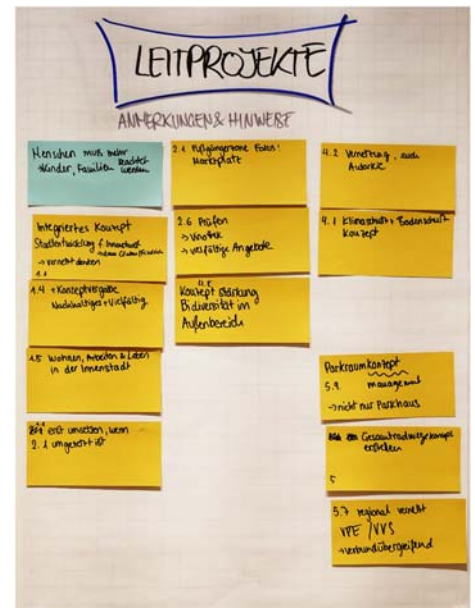 LEITPROJEKTE
ANMERKUNGEN & HINWEISE
Menschen muss mehr
Kinder, Familien beachtet
werden
Integriertes Konzept
Stadtentwicklung f. Innenstadt
→ vernetzt denken
1.1
1.4 + Konzeptvergabe
Nachhaltiges + Vielfältig
1.5 Wohnen, Arbeiten & Leben
in der Innenstadt
erst umsetzen, wenn
2.1 umgesetzt ist
2.1 Fußgängerzone Fokus:
Marktplatz
2.6 Prüfen
→ Vinothek
→ vielfältige Angebote
4.5
Konzept Stärkung
Bidiversität im
Außenbereich
4.2 Vernetzung, auch
Autarkie
4.1 Klimaschutz + Bodenschutz
Konzept
Parkraumkonzept
5.9 management
→ nicht nur Parkhaus
Gesamtradwegekonzept
erstellen
5
5.7 regional vernetzt
VPE / VVS
→ verbundübergreifend